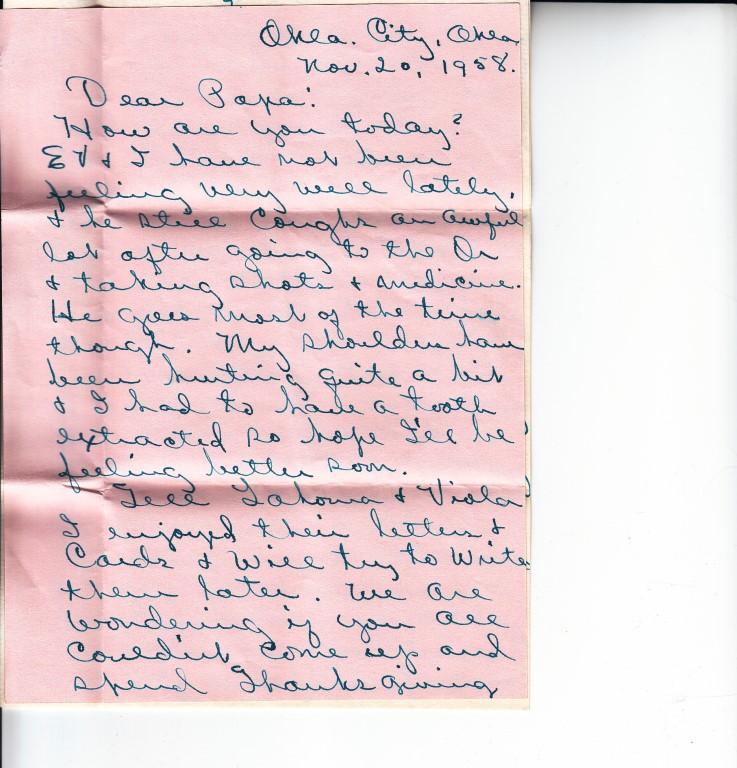 Okla. City, Okla
Nov. 20, 1958.
Dear Papa:
How are you today?
EV & I have not been
feeling very well lately.
& he still coughs an awful
lot after going to the Dr
& taking shots & medicine.
He goes most of the time
though. My shoulders have
been hurting quite a bit
& I had to have a tooth
extracted so hope I'll be
feeling better soon.
Tell Lahoma & Viola
I enjoyed their letters &
Cards & will try to write
them later. We are
wondering if you all
couldn't come up and
spend Thanksgiving